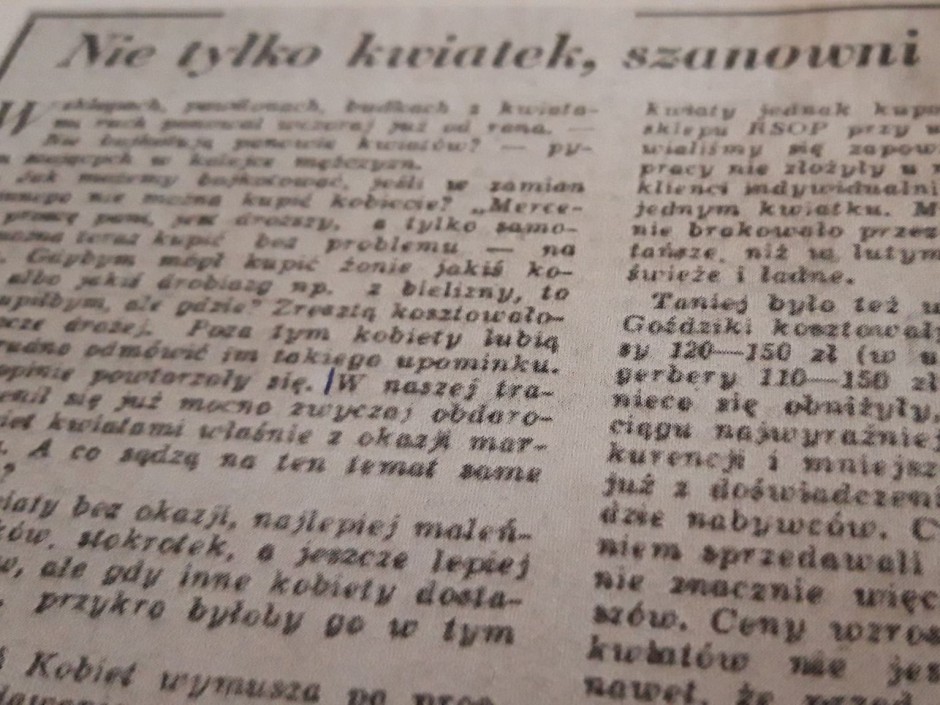 Nie tylko kwiatek, szanowni
W sklepach, pawilonach, budkach z kwiata-
mi ruch panował wczoraj już od rana. —
Nie bojkotują panowie kwiatów? — py-
stojących w kolejce mężczyzn.
Jak możemy bojkotować, jeśli w zamian
nie można kupić kobiecie? „Merce-
proszę pani, jest droższy, a tylko samo-
można teraz kupić bez problemu — na
Gdybym mógł kupić żonie jakiś ko-
albo jakiś drobiazg np. z bielizny, to
kupiłbym, ale gdzie? Zresztą kosztowało-
drożej. Poza tym kobiety lubią
trudno odmówić im takiego upominku.
opinie powtarzały się. W naszej tra-
się już mocno zwyczaj obdaro-
kwiatami właśnie z okazji mar-
A co sądzą na ten temat same
?
kwiaty bez okazji, najlepiej maleń-
stokrotek, a jeszcze lepiej
ale gdy inne kobiety dosta-
przykro byłoby go w tym
Kobiet wymusza po pros-
kwiaty jednak kupo
sklepu RSOP przy u
wialiśmy się zapow
pracy nie złożyły u n
klienci indywidualni
jednym kwiatku. M
nie brakowało przez
tańsze, niż w lutym
świeże i ładne.
Taniej było też u
Goździki kosztowały
sy 120—150 zł (w u
gerbery 110—150 zł
nieco się obniżyły,
ciągu najwyraźniej
kurencji i mniejsz
już z doświadczeni
dzie nabywców. C
niem sprzedawali
nie znacznie więc
szów. Ceny wzros
kwiatów nie jes
nawet, że przed